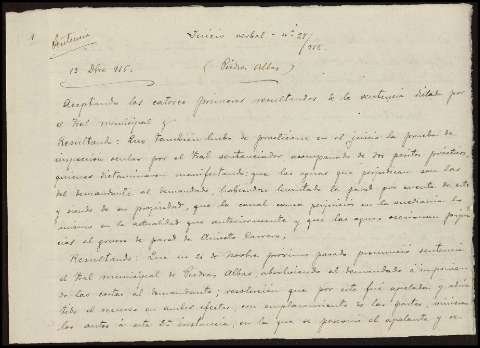 Sentencia
Juicio verbal - nº 28/915.
13 Dbre 915. (Piedras Albas)
Aceptando los catorce primeros resultandos de la sentencia dictada por
el Tral municipal y
Resultando: Que también hubo de practicarse en el juicio la prueba de
inspeccion ocular por el Tral sentenciador acompañado de dos peritos prácticos,
quienes dictaminaron manifestando: que las aguas que perjudican son las
del demandante al demandado, habiendo levantado la pared por cuenta de este
y siendo de su propiedad, que la corral causa perjuicios en la medianería lo
mismo en la actualidad que anteriormente y que las aguas ocasionan perjui-
cios al grueso de pared de
Resultando: Que en de Novbre próximo pasado pronunció sentencia
el Tral municipal de Piedras Albas, absolviendo al demandado é imponien-
do las costas al demandante; resolución que por este fué apelada y admi-
tido el recurso en ambos efectos, con emplazamiento de las partes, vinieron
los autos á esta 2ª instancia, en la que se personó el apelante y se